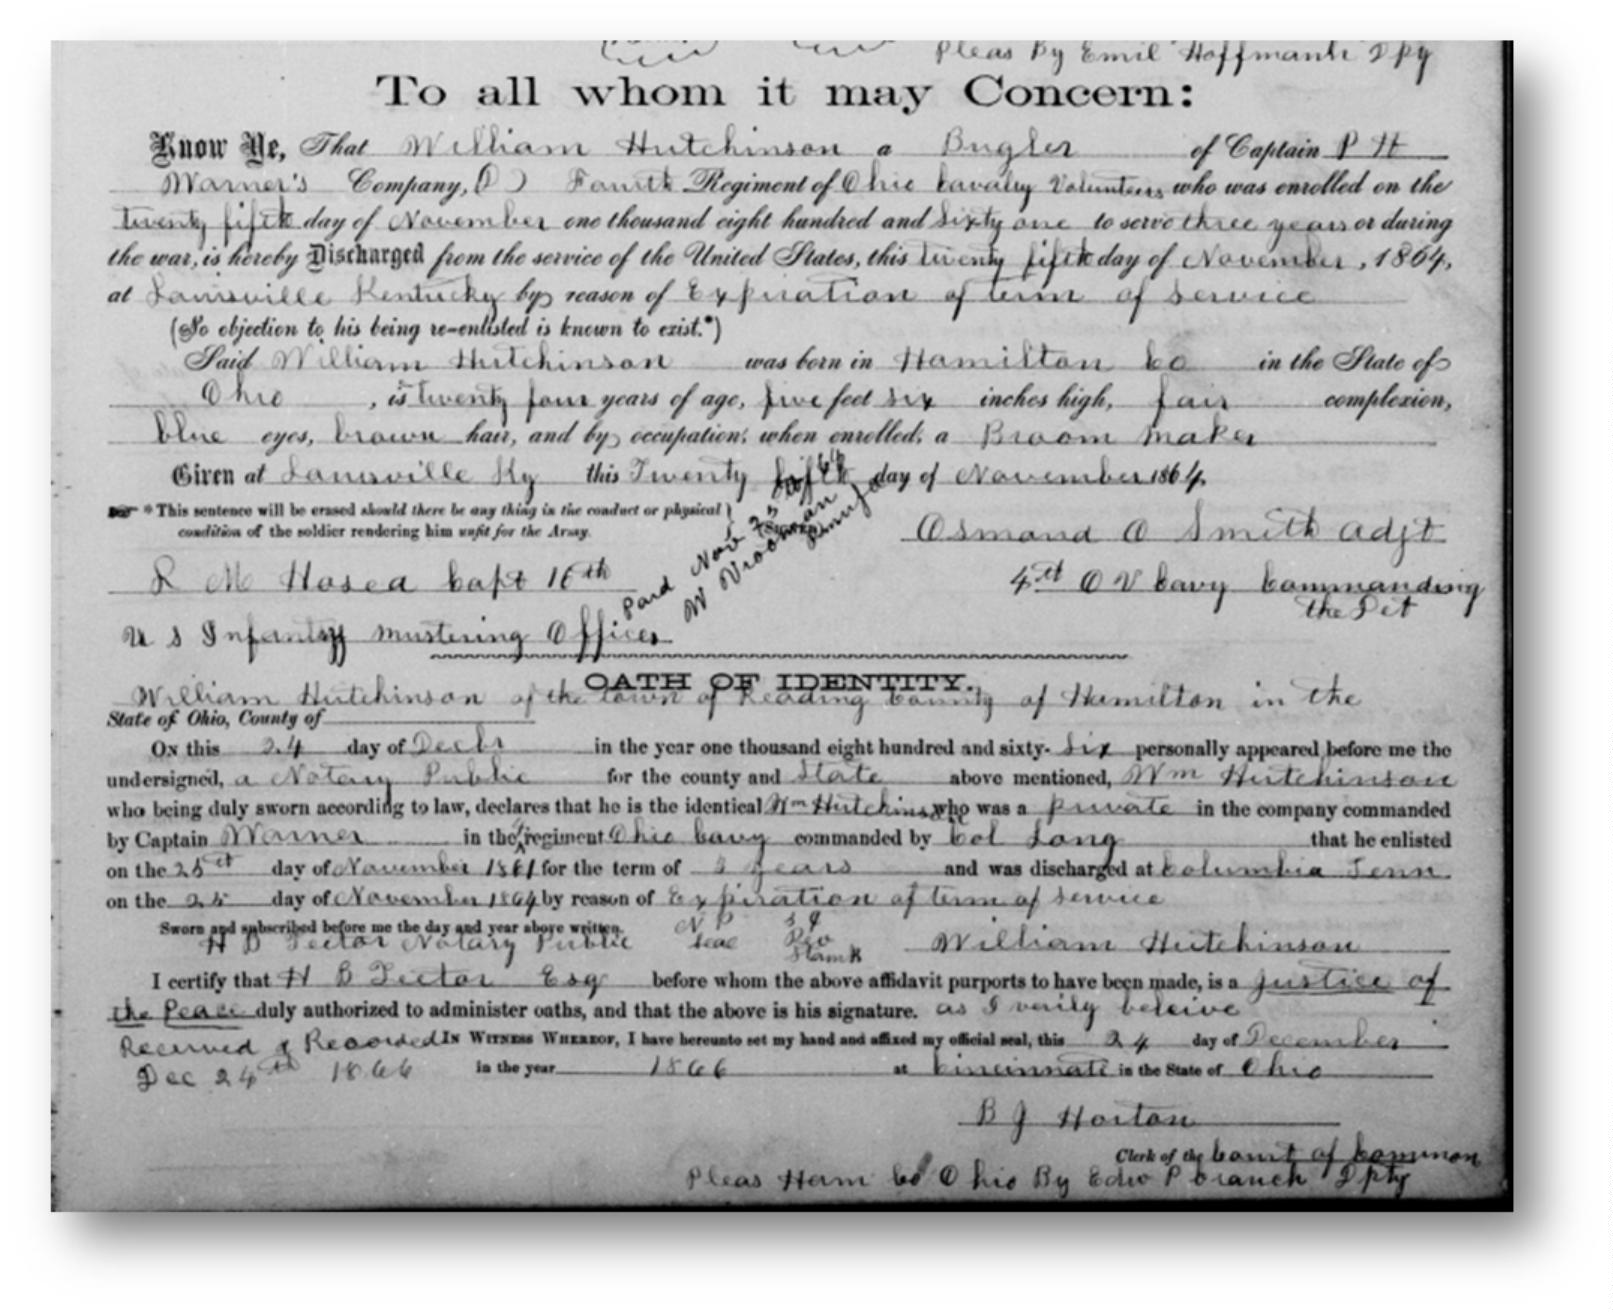 Pleas By Emil Hoffmann Dpy
To all whom it may Concern:
Know Ye, That William Hutchinson a Bugler of Captain P H
Warner's Company, (D) Fourth Regiment of Ohio Cavalry Volunteers who was enrolled on the
twenty fifth day of November one thousand eight hundred and sixty one to serve three years or during
the war, is hereby Discharged from the service of the United States, this twenty fifth day of November, 1864,
at Louisville Kentucky by reason of Expiration of term of service
(No objection to his being re-enlisted is known to exist.*)
Said William Hutchinson was born in Hamilton Co in the State of
Ohio, is twenty four years of age, five feet six inches high, fair complexion,
blue eyes, brown hair, and by occupation, when enrolled, a Broom Maker
Given at Louisville Ky this Twenty fifth day of November 1864.
* This sentence will be erased should there be any thing in the conduct or physical
condition of the soldier rendering him unfit for the Army.
Paid Nov 25 64
W Vrooman
Osmand O Smith Adjt
L M Hosea Capt 16th
4th O V Cavy Commanding
the Det
U S Infantry Mustering Officer
OATH OF IDENTITY.
William Hutchinson of the town of Reading County of Hamilton in the
State of Ohio, County of
On this 24 day of Decbr in the year one thousand eight hundred and sixty-six personally appeared before me the
undersigned, a Notary Public for the county and State above mentioned, Wm Hutchinson
who being duly sworn according to law, declares that he is the identical Wm Hutchinson who was a private in the company commanded
by Captain Warner in the 4 regiment Ohio Cavy commanded by Col Long that he enlisted
on the 25th day of November 1861 for the term of 3 years and was discharged at Columbia Tenn
on the 25 day of November 1864 by reason of Expiration of term of service
Sworn and subscribed before me the day and year above written.
H B Teetor Notary Public N P Seal 5 ¢ Rev Stamp William Hutchinson
I certify that H B Teetor Esq before whom the above affidavit purports to have been made, is a Justice of
the Peace duly authorized to administer oaths, and that the above is his signature. as I verily beleive
Received & Recorded IN WITNESS WHEREOF, I have hereunto set my hand and affixed my official seal, this 24 day of December
Dec 24th 1866 in the year 1866 at Cincinnati in the State of Ohio
B J Horton
Clerk of the Court of Common
Pleas Ham Co Ohio By Edw P Cranch Dpty